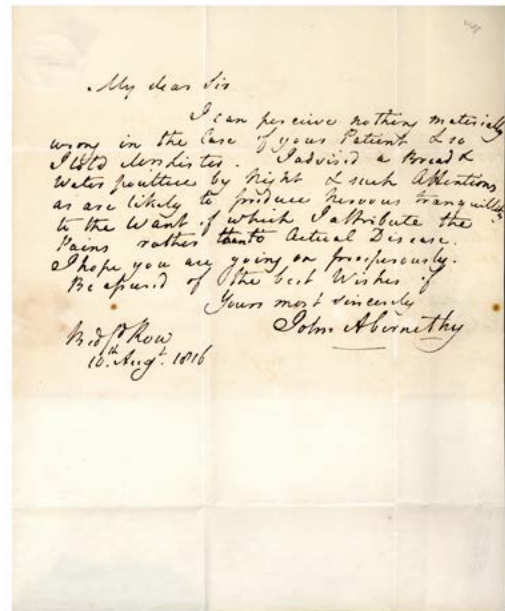 My dear Sir
I can perceive nothing materially
wrong in the Case of your Patient & so
I told   . I advised a Bread &
Water poultice by Night & such Attentions
as are likely to produce Nervous tranquillity
to the Want of which I attribute the
Pains rather than to Actual Disease.
I hope you are going on prosperously.
Be assured of the best Wishes of
Yours most sincerely
John Abernethy
Bedfd Row
10th Augt. 1816